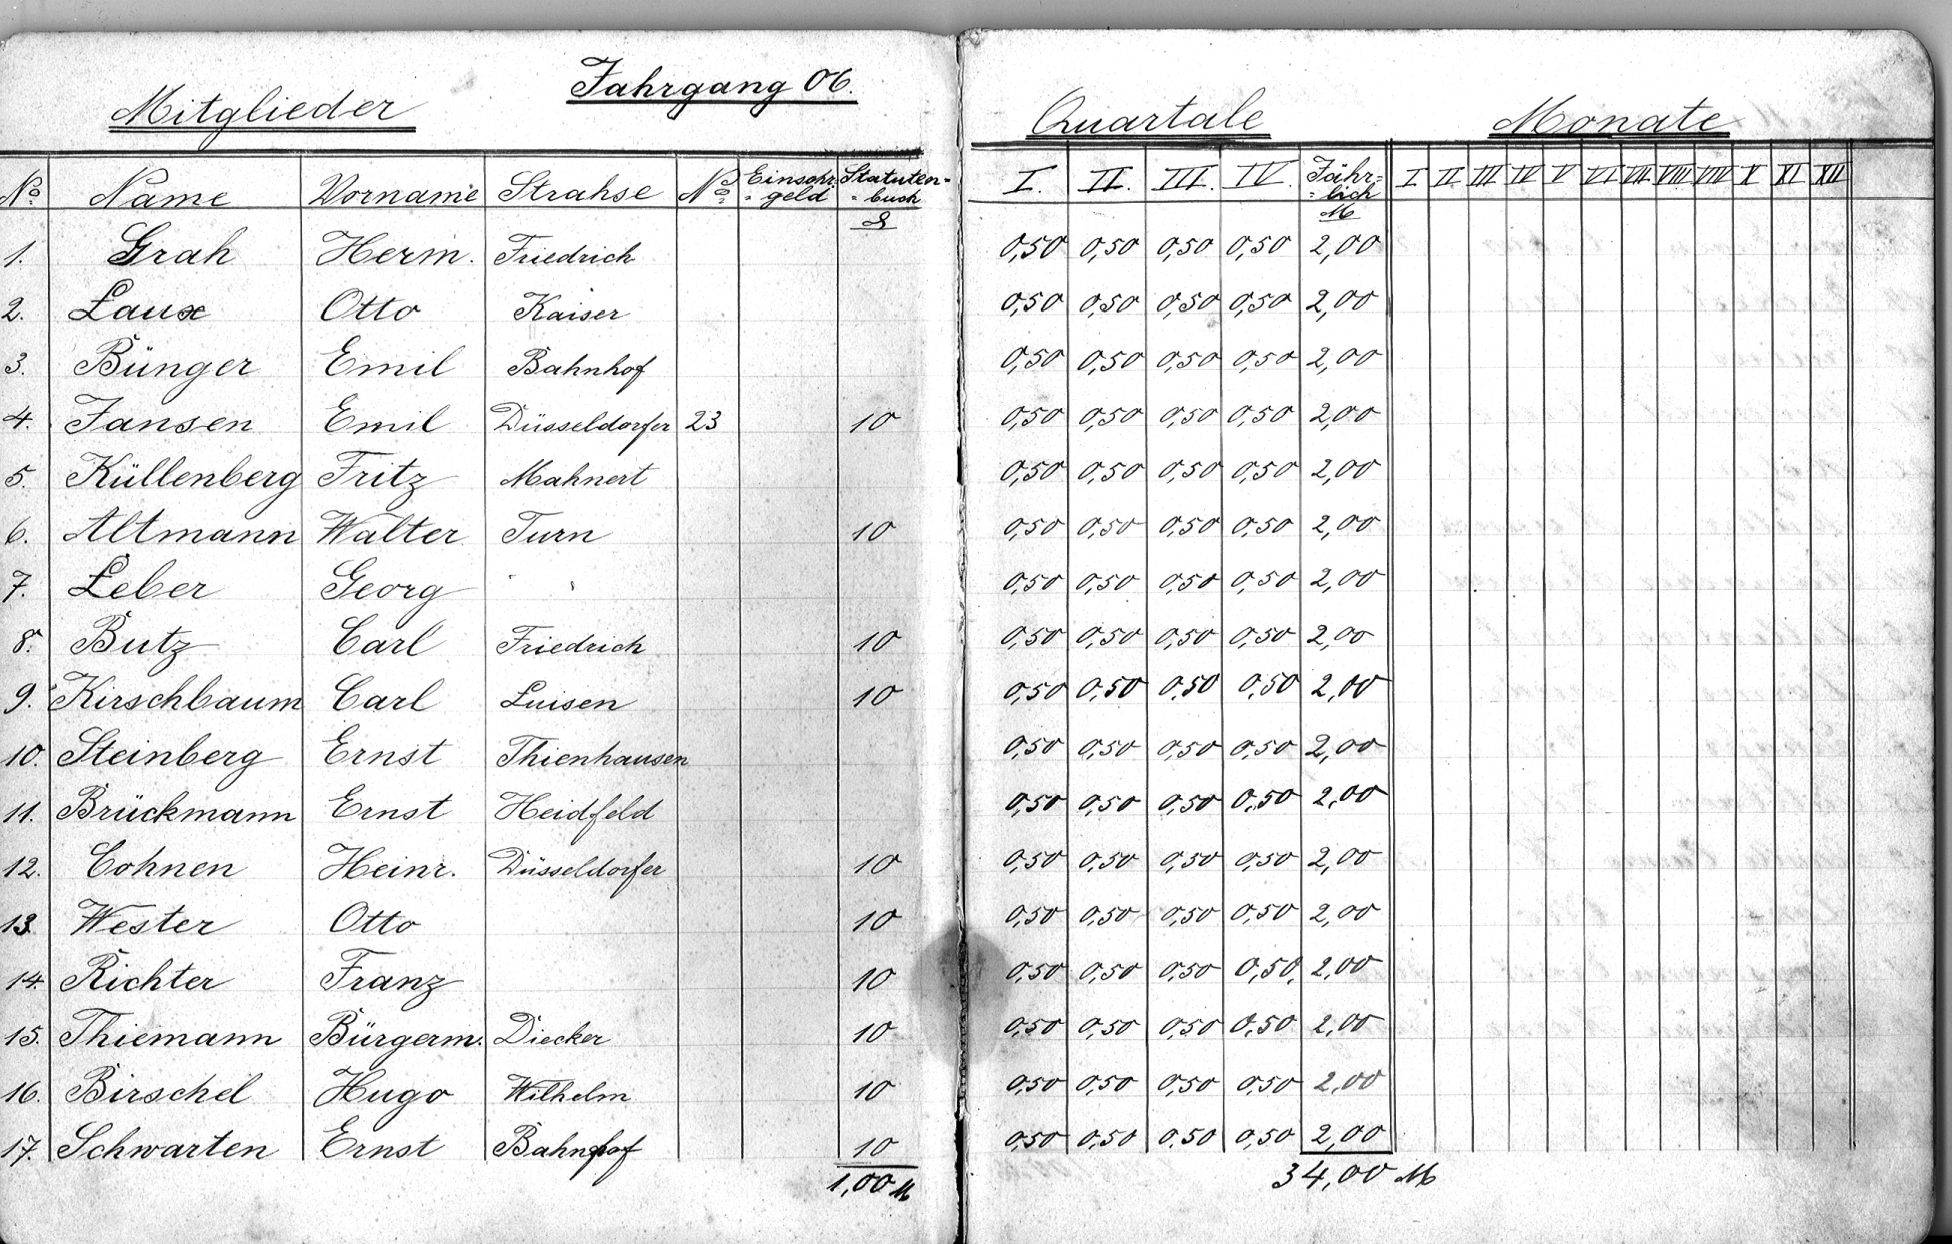 Jahrgang 06.
Mitglieder
Quartale Monate
No Name Vorname Strahse No Einschr.-geld Statuten-buch I. II. III. IV. Jährlich M I II III IV V VI VII VIII VIIII X XI XII
1. Grah Herm. Friedrich 0,50 0,50 0,50 0,50 2,00
2. Laux Otto Kaiser 0,50 0,50 0,50 0,50 2,00
3. Bünger Emil Bahnhof 0,50 0,50 0,50 0,50 2,00
4. Jansen Emil Düsseldorfer 23 10 0,50 0,50 0,50 0,50 2,00
5. Küllenberg Fritz Mahnert 0,50 0,50 0,50 0,50 2,00
6. Altmann Walter Turn 10 0,50 0,50 0,50 0,50 2,00
7. Leber Georg " " 0,50 0,50 0,50 0,50 2,00
8. Butz Carl Friedrich 10 0,50 0,50 0,50 0,50 2,00
9. Kirschbaum Carl Luisen 10 0,50 0,50 0,50 0,50 2,00
10. Steinberg Ernst Thienhausen 0,50 0,50 0,50 0,50 2,00
11. Brückmann Ernst Heidfeld 0,50 0,50 0,50 0,50 2,00
12. Cohnen Heinr. Düsseldorfer 10 0,50 0,50 0,50 0,50 2,00
13. Wester Otto 10 0,50 0,50 0,50 0,50 2,00
14. Richter Franz 10 0,50 0,50 0,50 0,50 2,00
15. Thiemann Bürgerm. Diecker 10 0,50 0,50 0,50 0,50 2,00
16. Birschel Hugo Wilhelm 10 0,50 0,50 0,50 0,50 2,00
17. Schwarten Ernst Bahnhof 10 0,50 0,50 0,50 0,50 2,00
1,00 M 34,00 M